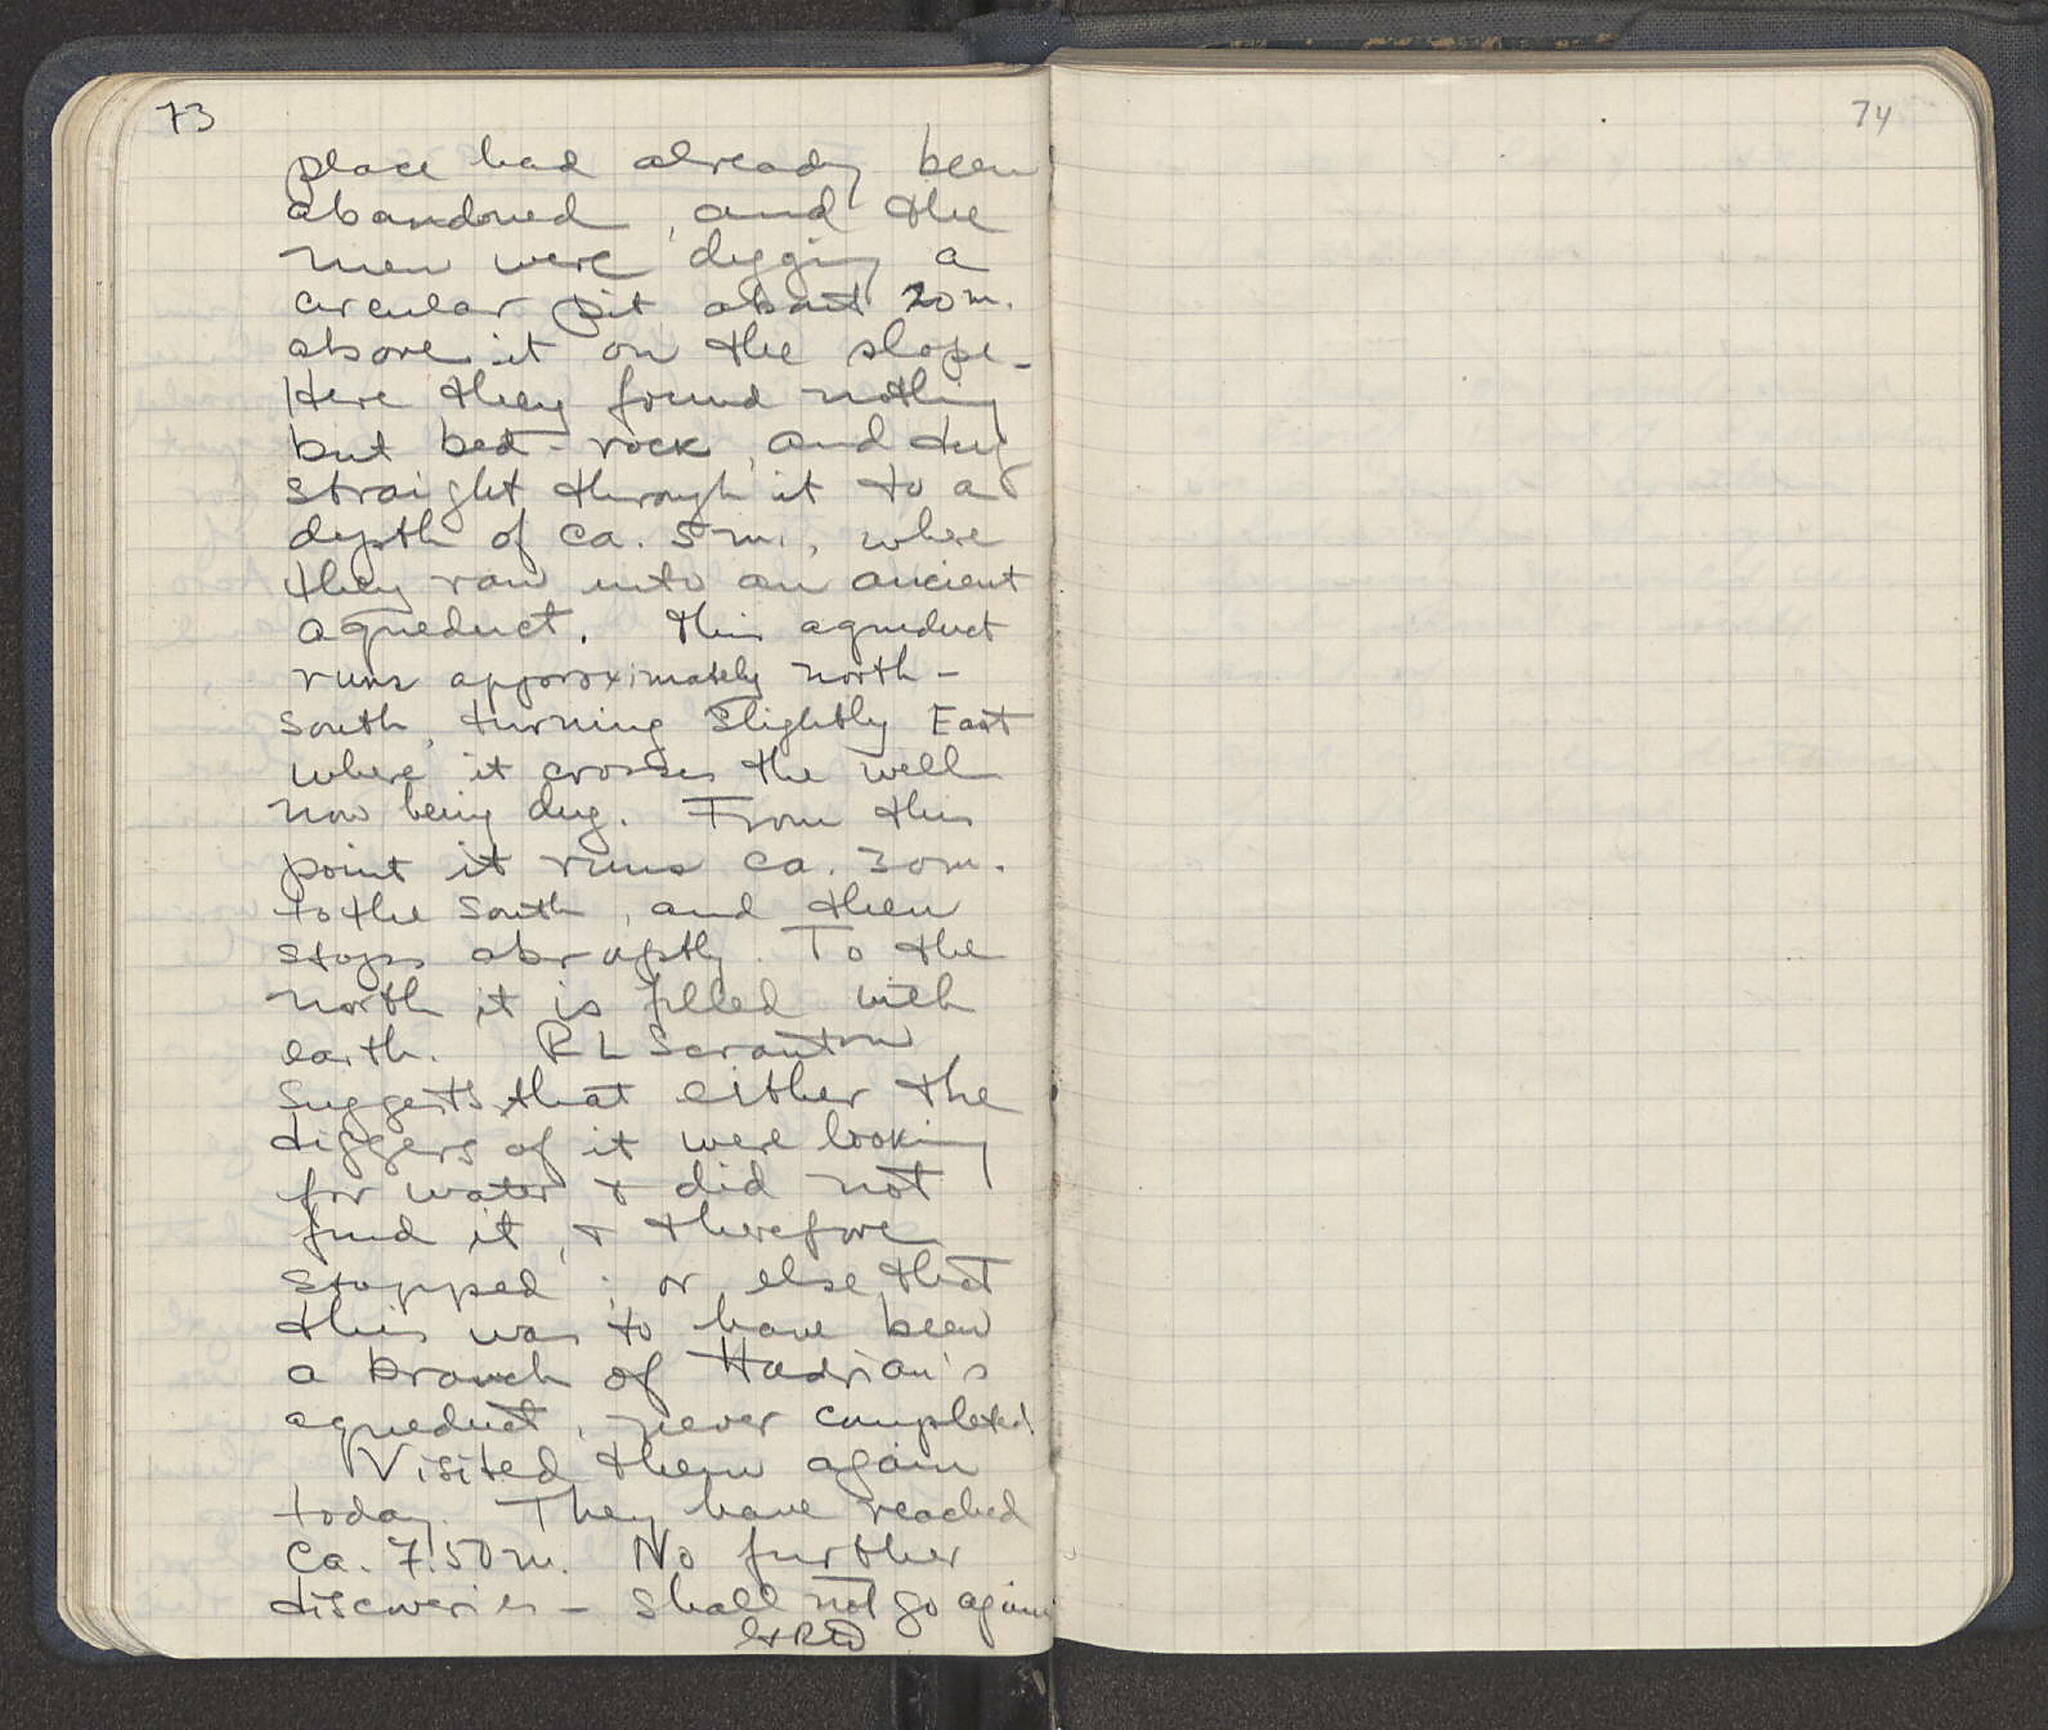 73
place had already been
abandoned, and the
men were digging a
circular pit about 20 m.
above it on the slope -
Here they found nothing
but bed-rock, and dug
straight through it to a
depth of ca. 5 m., where
they ran into an ancient
aqueduct. This aqueduct
runs approximately north-
south, turning slightly East
where it crosses the well
now being dug. From this
point it runs ca. 30 m.
to the south, and then
stops abruptly. To the
north it is filled with
earth. R L Scranton
suggests that either the
diggers of it were looking
for water & did not
find it, & therefore
stopped; or else that
this was to have been
a branch of Hadrian's
aqueduct, never completed.
Visited them again
today. They have reached
ca. 7.50 m. No further
discoveries - shall not go again
74